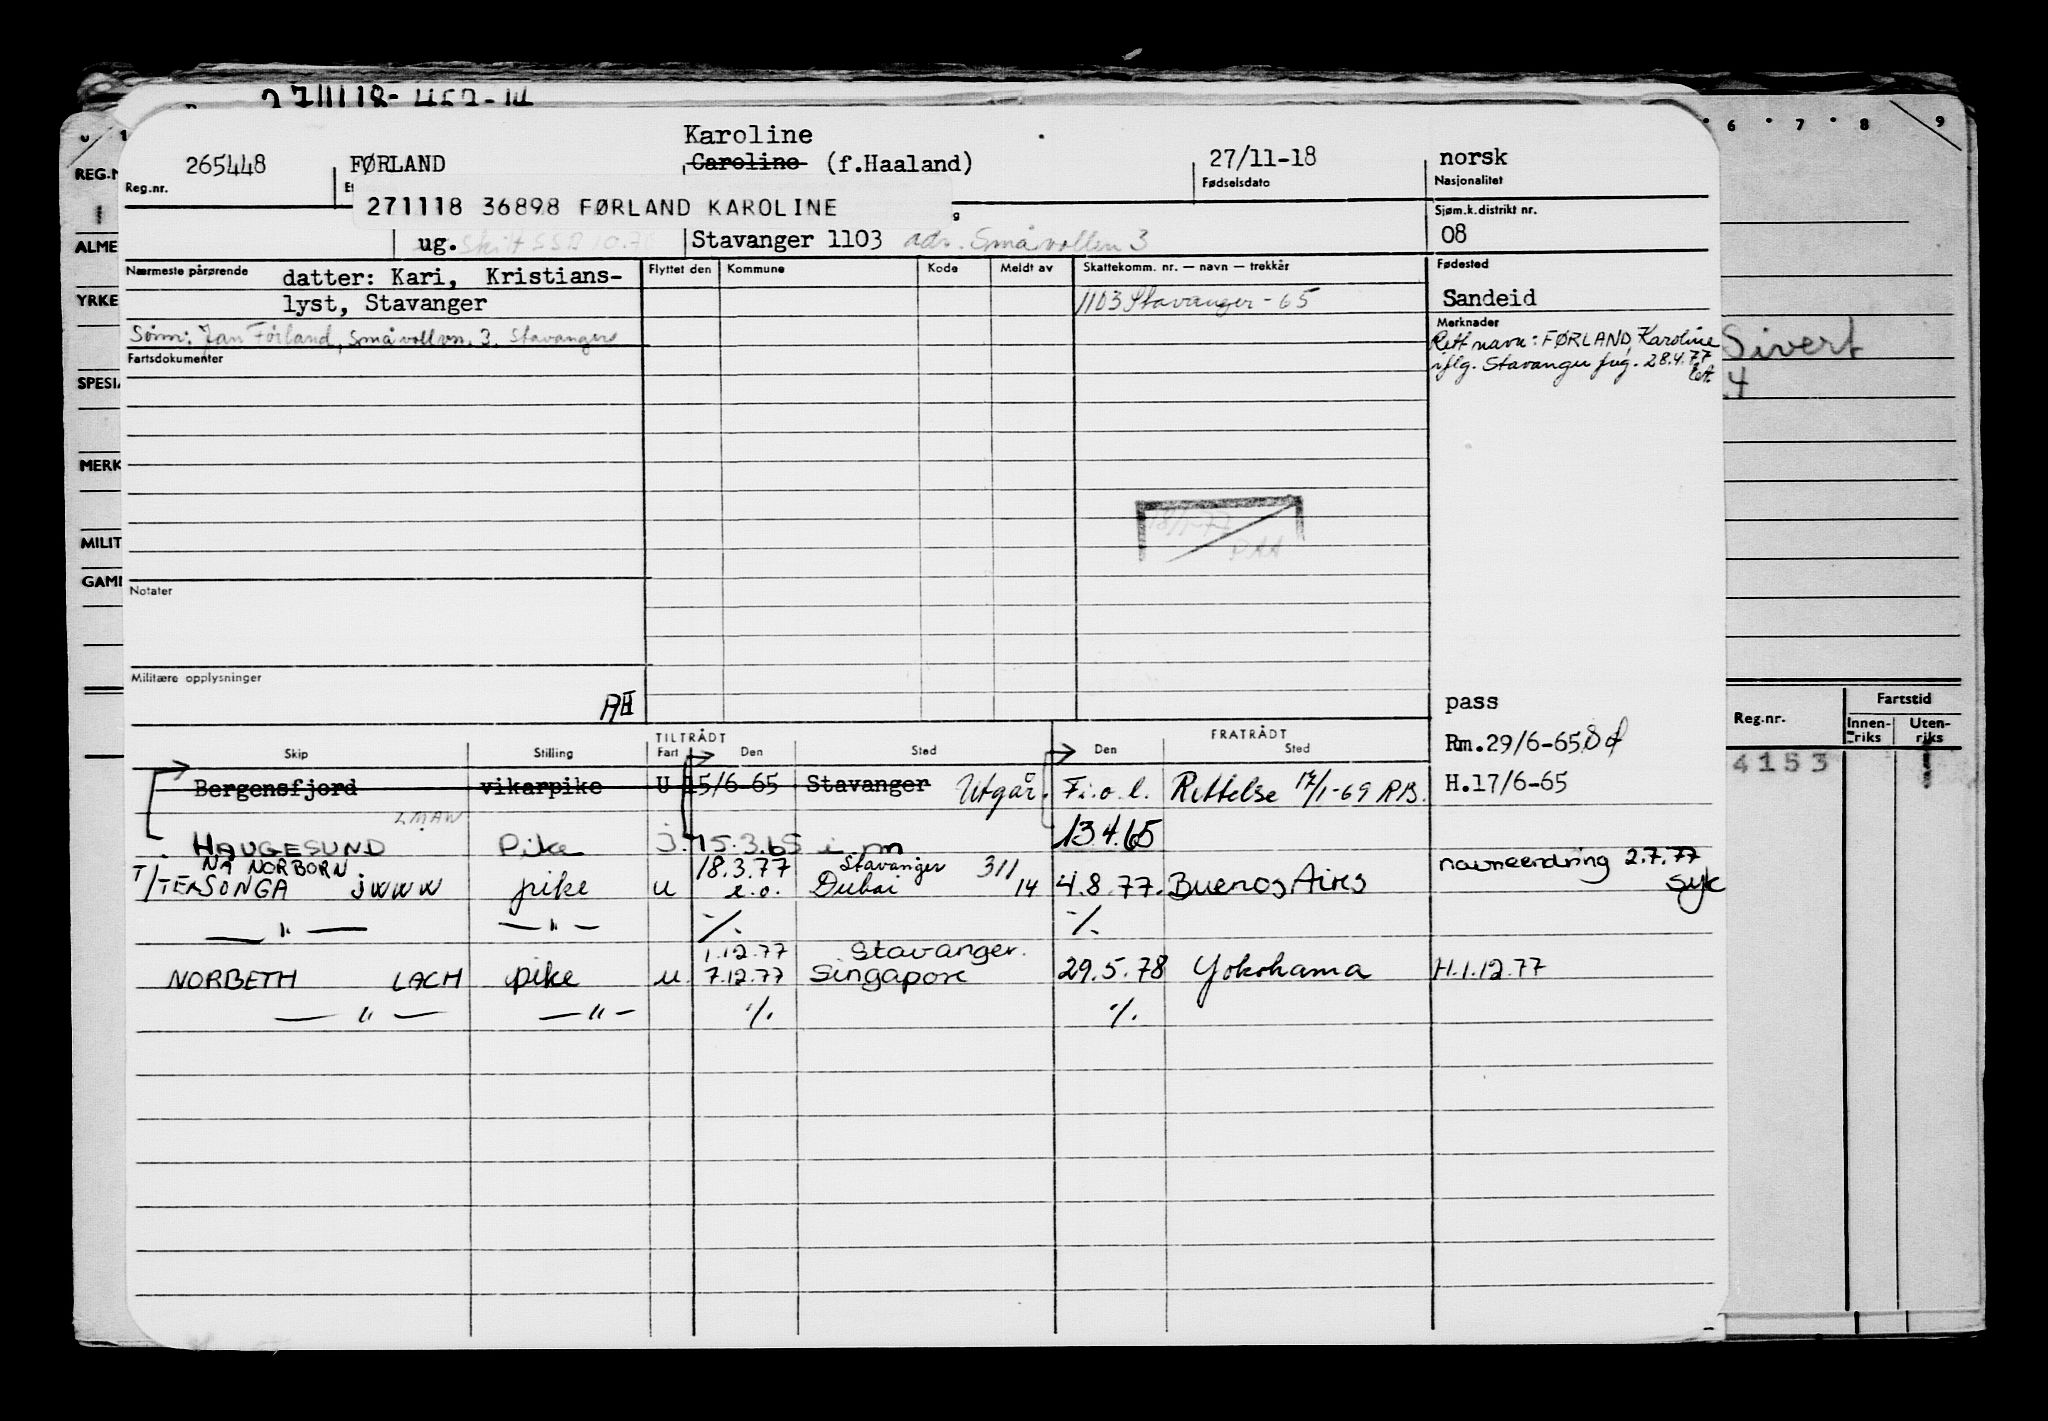 Karoline
265448 FØRLAND Caroline (f.Haaland) 27/11-18 norsk
Reg.nr. Fødselsdato Nasjonalitet
271118 36898 FØRLAND KAROLINE
Sjøm.k.distrikt nr.
ug. Stavanger 1103 adr. Småvollen 3 08
Nærmeste pårørende datter: Kari, Kristians-
lyst, Stavanger
Flyttet den Kommune Kode Meldt av Skattekomm. nr. — navn — trekkår Fødested
1103 Stavanger - 65 Sandeid
Sønn: Jan Førland, Småvollvn. 3. Stavanger
Merknader
Rett navn: FØRLAND, Karoline
iflg. Stavanger 28.4.77
Fartsdokumenter
Notater
Militære opplysninger
pass
Rm.29/6-65
H.17/6-65
TILTRÅDT FRATRÅDT
Skip Stilling Fart Den Sted Den Sted
Bergensfjord vikarpike U 15/6-65 Stavanger Utgår. F.o.l. Rettelse 17/1-69 RB.
LMAW
HAUGESUND Pike j. 15.3.65 i.m 13.4.65
NÅ NORBORN 18.3.77 Stavanger 311 navneendring 2.7.77
T/T TERSONGA JWWW pike u e.o. Dubai 14 4.8.77. Buenos Aires syk
— " — — " — ./. ./.
1.12.77 Stavanger.
NORBETH LACH pike u. 7.12.77 Singapore 29.5.78 Yokohama H.1.12.77
— " — — " — ./. ./.
REG.N
ALME
YRKE
SPESI
MERK
MILIT
GAML
6 7 8 9
Sivert
4
Reg.nr. Fartstid
Innen-riks Uten-riks
4153